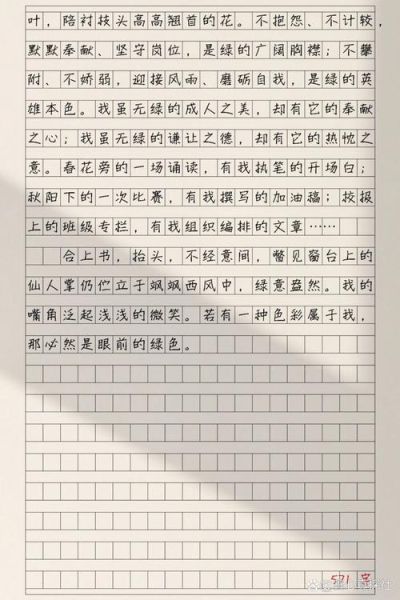 叶，陪衬枝头高高翘首的花。不抱怨、不计较，
默默奉献、坚守岗位，是绿的广阔胸襟；不攀
附、不娇弱，迎接风雨、磨砺自我，是绿的英
雄本色。我虽无绿的成人之美，却有它的奉献
之心；我虽无绿的谦让之德，却有它的热忱之
意。春花旁的一场诵读，有我执笔的开场白；
秋阳下的一次比赛，有我撰写的加油稿；校报
上的班级专栏，有我组织编排的文章……
合上书，抬头，不经意间，瞥见窗台上的
仙人掌仍伫立于飒飒西风中，绿意盎然。我的
嘴角泛起浅浅的微笑。若有一种色彩属于我，
那必然是眼前的绿色。
571 字